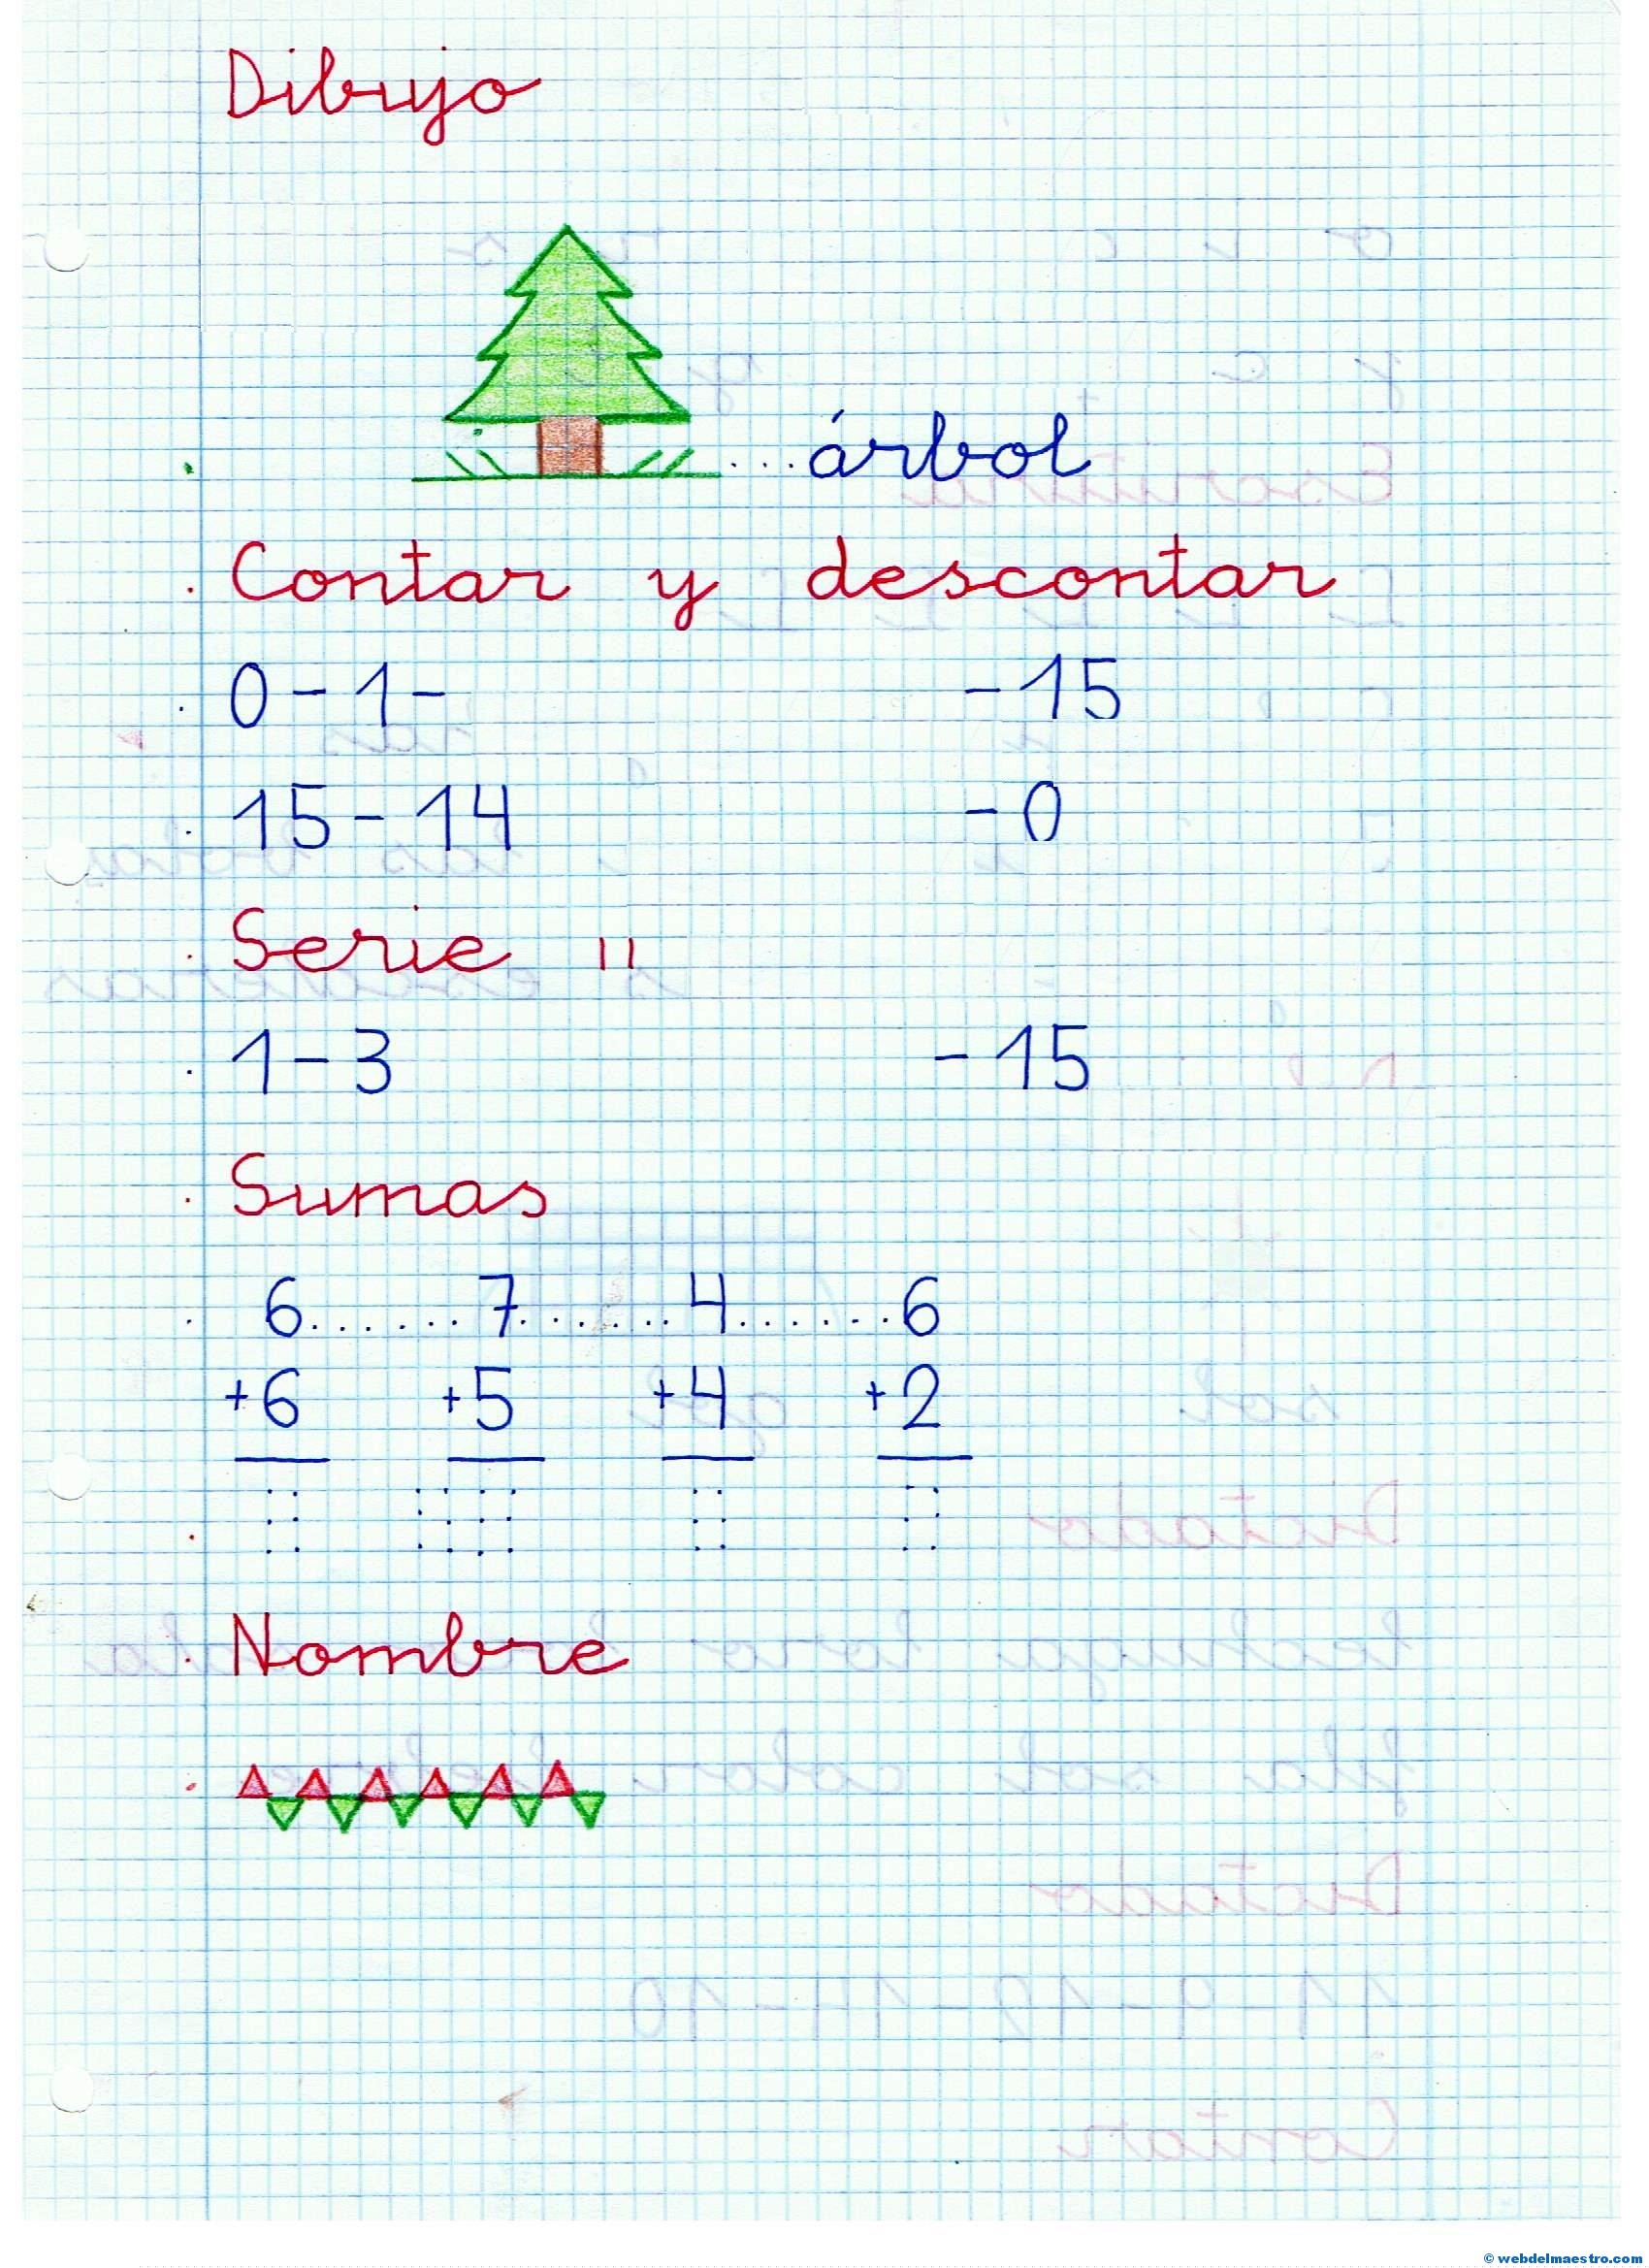 Dibujo
árbol
Contar y descontar
0-1- -15
15-14 -0
Serie 11
1-3 -15
Sumas
6.......7.......4.......6
+6 +5 +4 +2
Nombre
© webdelmaestro.com